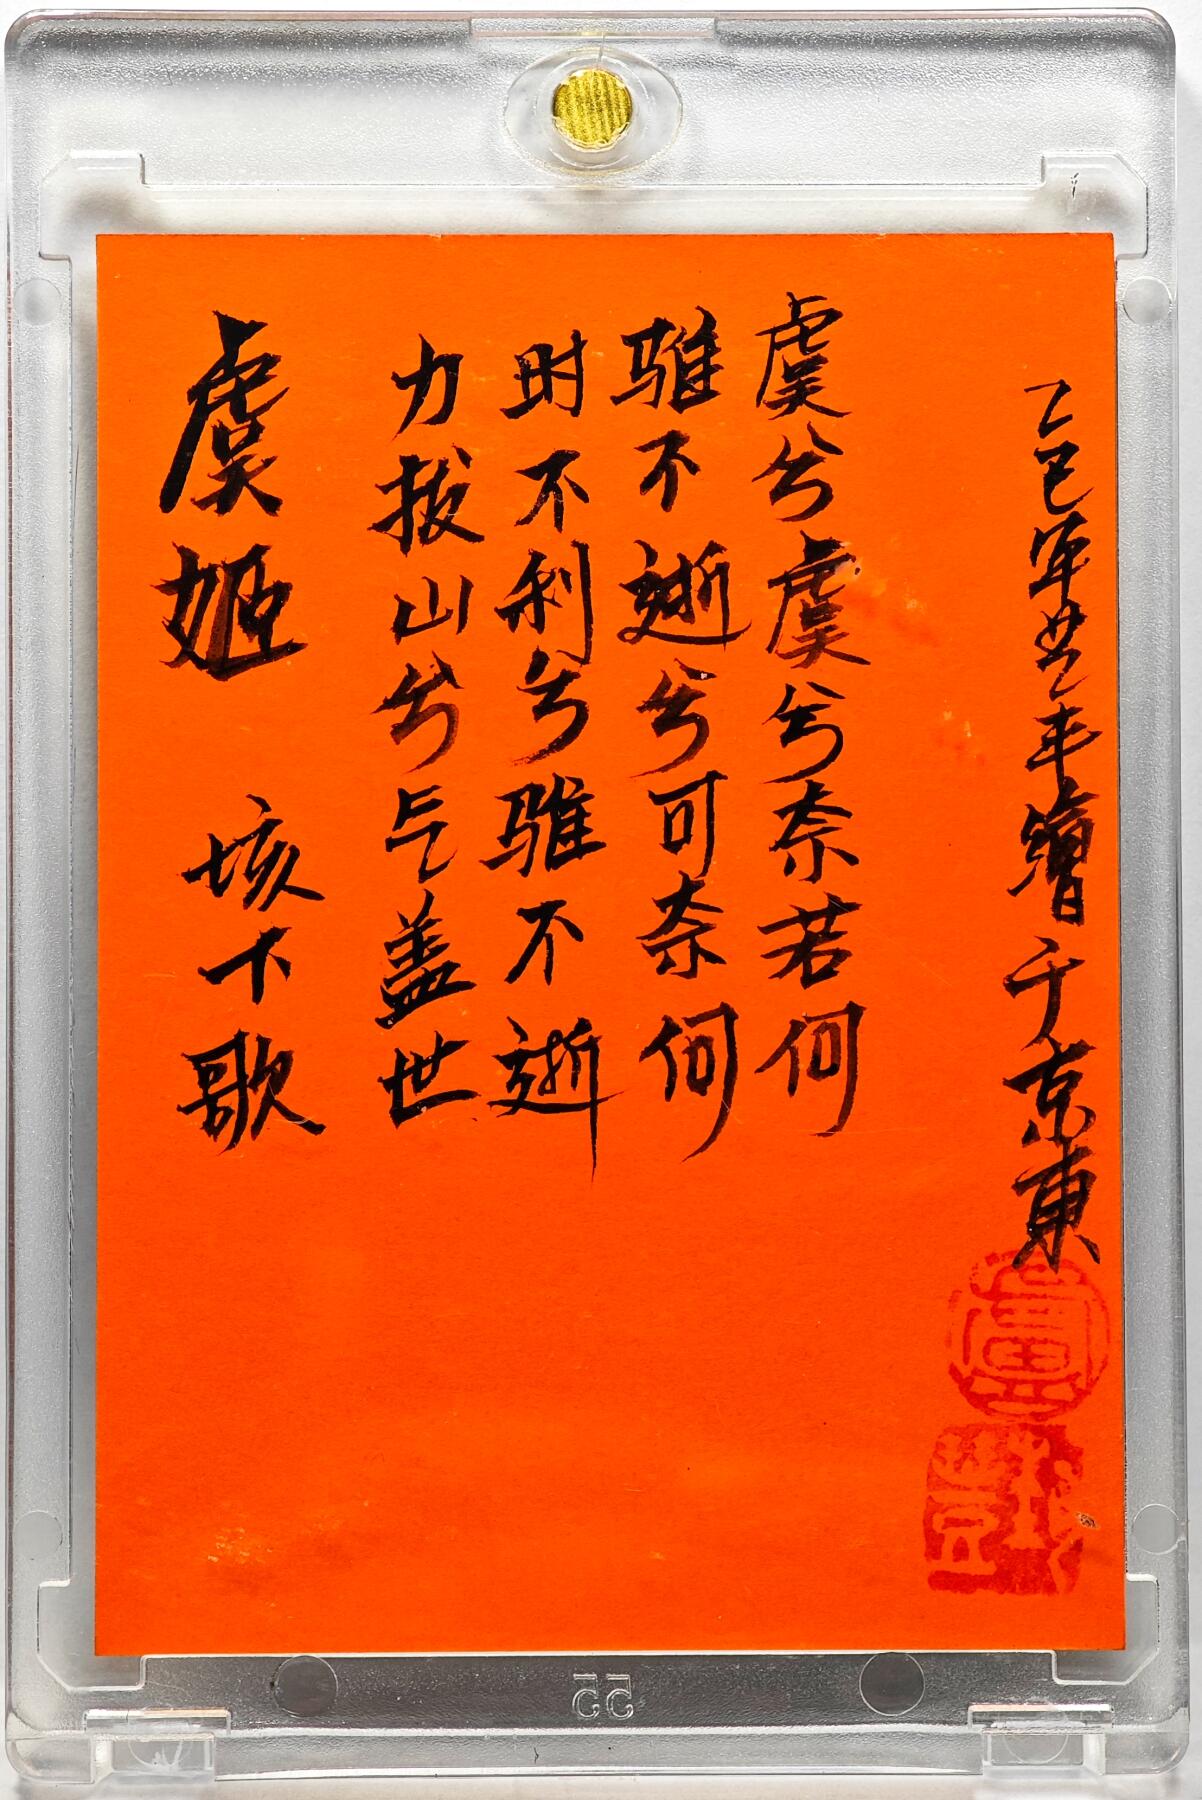 虞姬 垓下歌
力拔山兮气盖世
时不利兮骓不逝
骓不逝兮可奈何
虞兮虞兮奈若何
乙巳年繪于京東
55